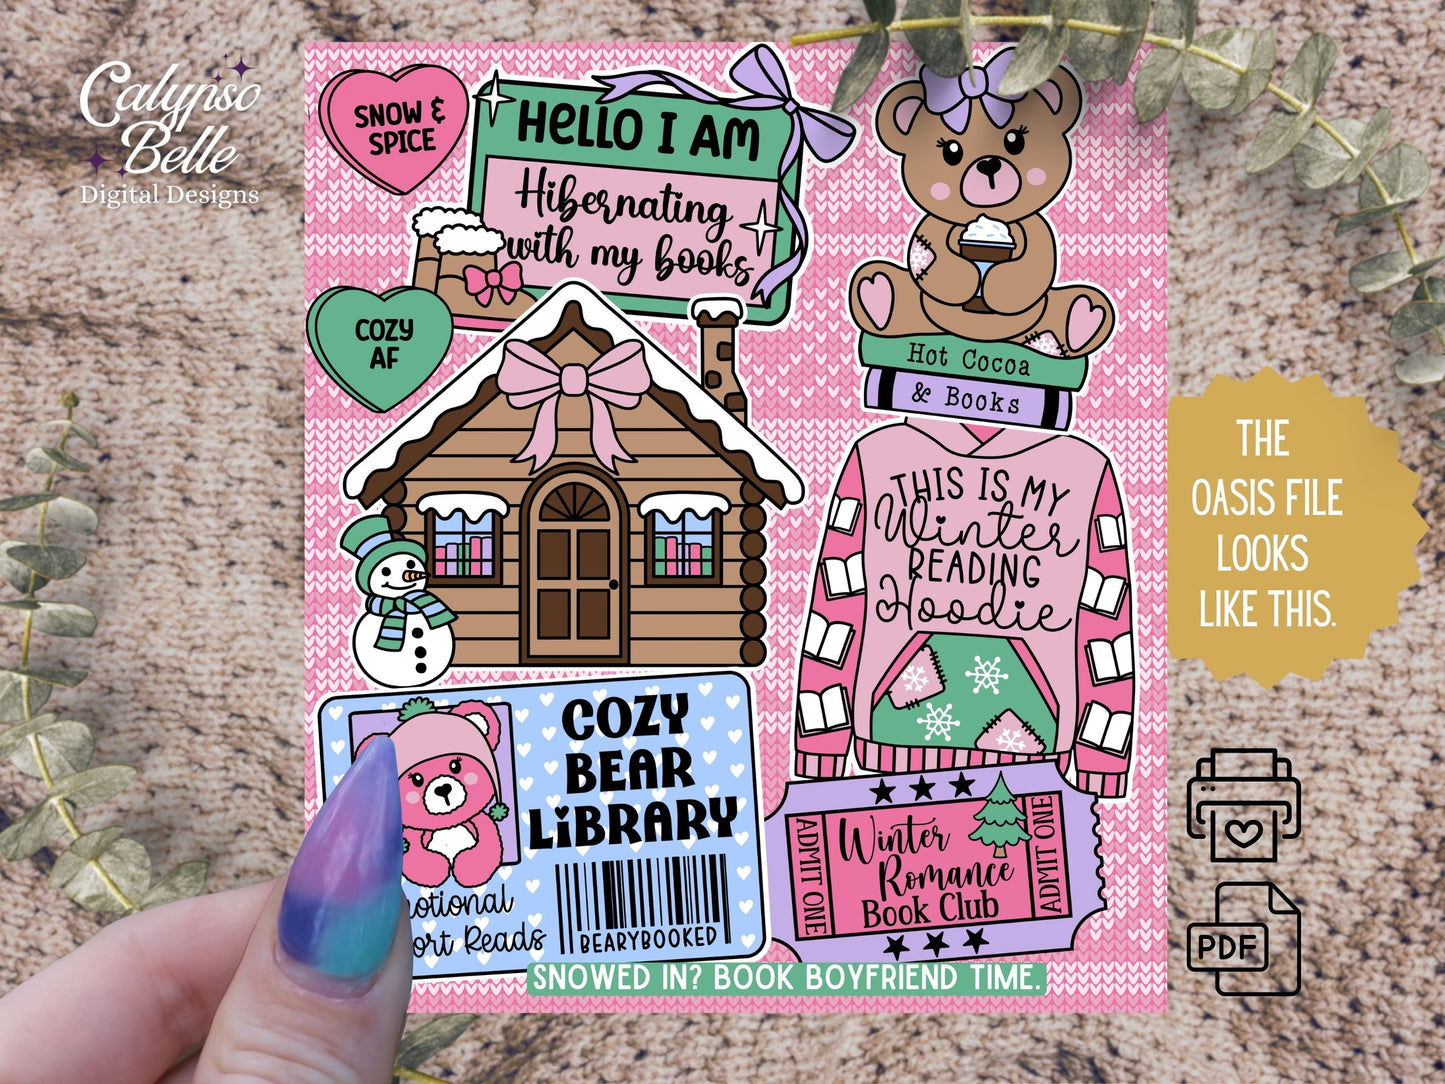 Calypso
Belle
Digital Designs
SNOW &
SPICE
HELLO I AM
Hibernating
with my books
COZY
AF
Hot Cocoa
& Books
THIS IS MY
Winter
READING
Hoodie
THE
OASIS FILE
LOOKS
LIKE THIS.
COZY
BEAR
LIBRARY
Reads
BEARYBOOKED
ADMIT ONE
Winter
Romance
Book Club
ADMIT ONE
SNOWED IN? BOOK BOYFRIEND TIME.
PDF